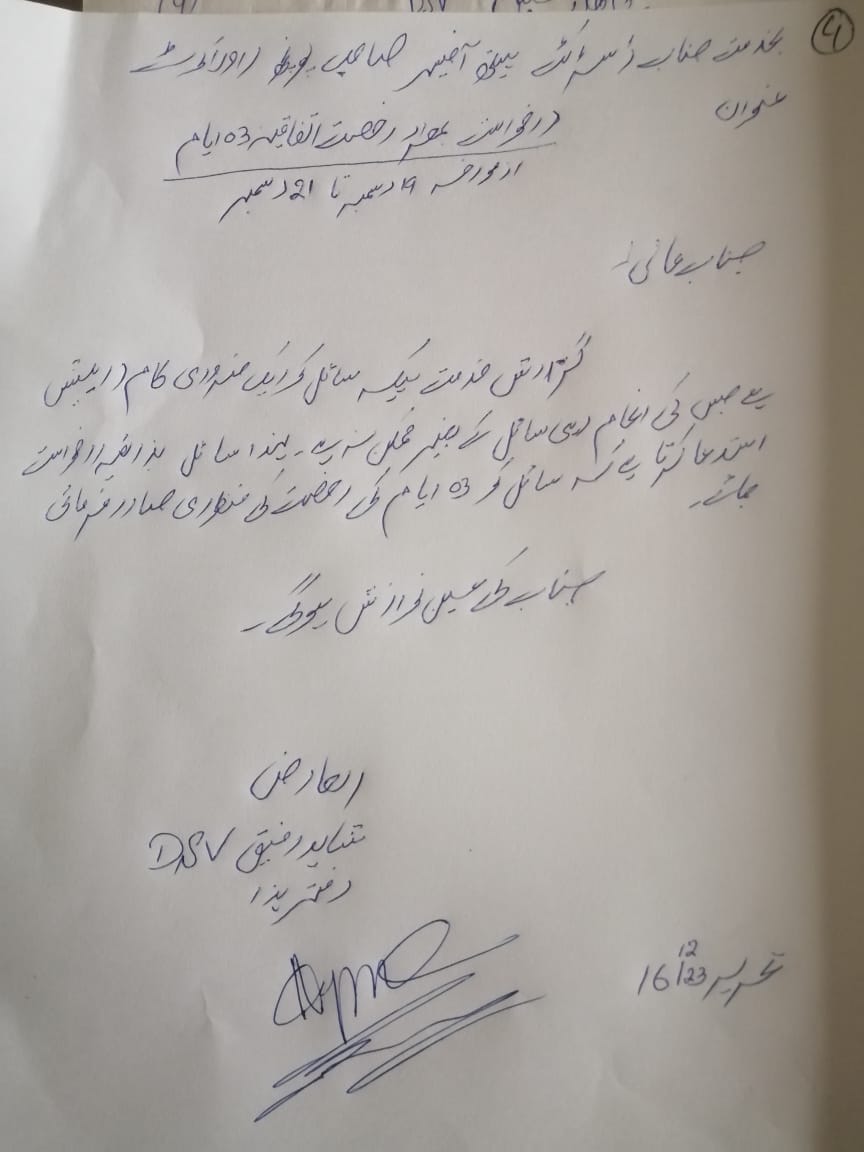 4
بخدمت جناب ڈسٹرکٹ ہیلتھ آفیسر صاحب پونچھ راولاکوٹ
عنوان
درخواست بمراد رخصت اتفاقیہ 03 ایام
از مورخہ 19 دسمبر تا 21 دسمبر
جناب عالی!
گزارش خدمت ہیکہ سائل کو ایک ضروری کام درپیش
ہے جس کی انجام دہی سائل کے بغیر ممکن نہ ہے۔ لہذا سائل بذریعہ درخواست
استدعا کرتا ہے کہ سائل کو 03 ایام کی رخصت کی منظوری صادر فرمائی
جائے۔
جناب کی عین نوازش ہوگی۔
العارض
شاہد رفیق DSV
دفتر ہذا
تحریر 16/12/23